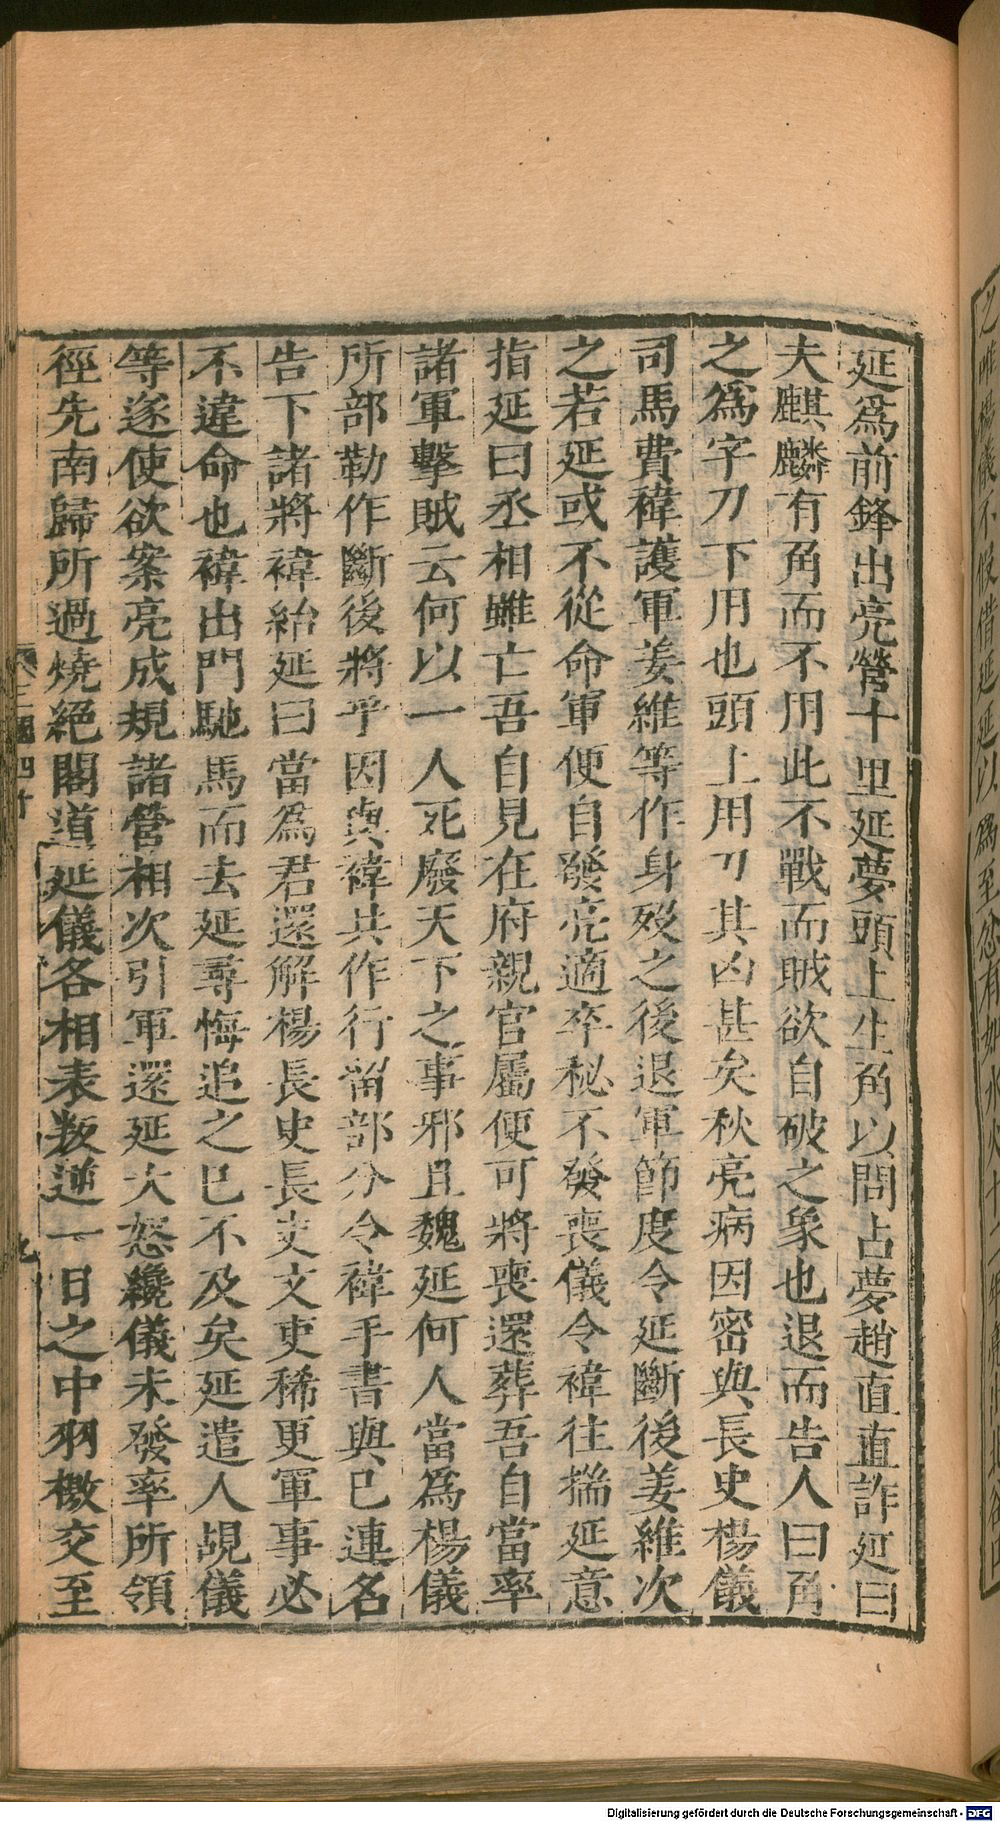 延爲前鋒出亮營十里延夢頭上生角以問占夢趙直直詐延曰
夫麒麟有角而不用此不戰而賊欲自破之象也退而告人曰角
之爲字刀下用也頭上用刀其凶甚矣秋亮病因密與長史楊儀
司馬費禕護軍姜維等作身歿之後退軍節度令延斷後姜維次
之若延或不從命軍便自發亮適卒秘不發喪儀令禕往揣延意
指延曰丞相雖亡吾自見在府親官屬便可將喪還葬吾自當率
諸軍擊賊云何以一人死廢天下之事邪且魏延何人當爲楊儀
所部勒作斷後將乎因與禕共作行留部分令禕手書與已連名
告下諸將禕紿延曰當爲君還解楊長史長史文吏稀更軍事必
不違命也禕出門馳馬而去延尋悔追之巳不及矣延遣人覘儀
等遂使欲案亮成規諸營相次引軍還延大怒纔儀未發率所領
徑先南歸所過燒絕閣道延儀各相表叛逆一日之中羽檄交至
三國四十
九
之唯楊儀不假借延延以爲至忿有如水火十二年亮出北谷口
Digitalisierung gefördert durch die Deutsche Forschungsgemeinschaft - DFG